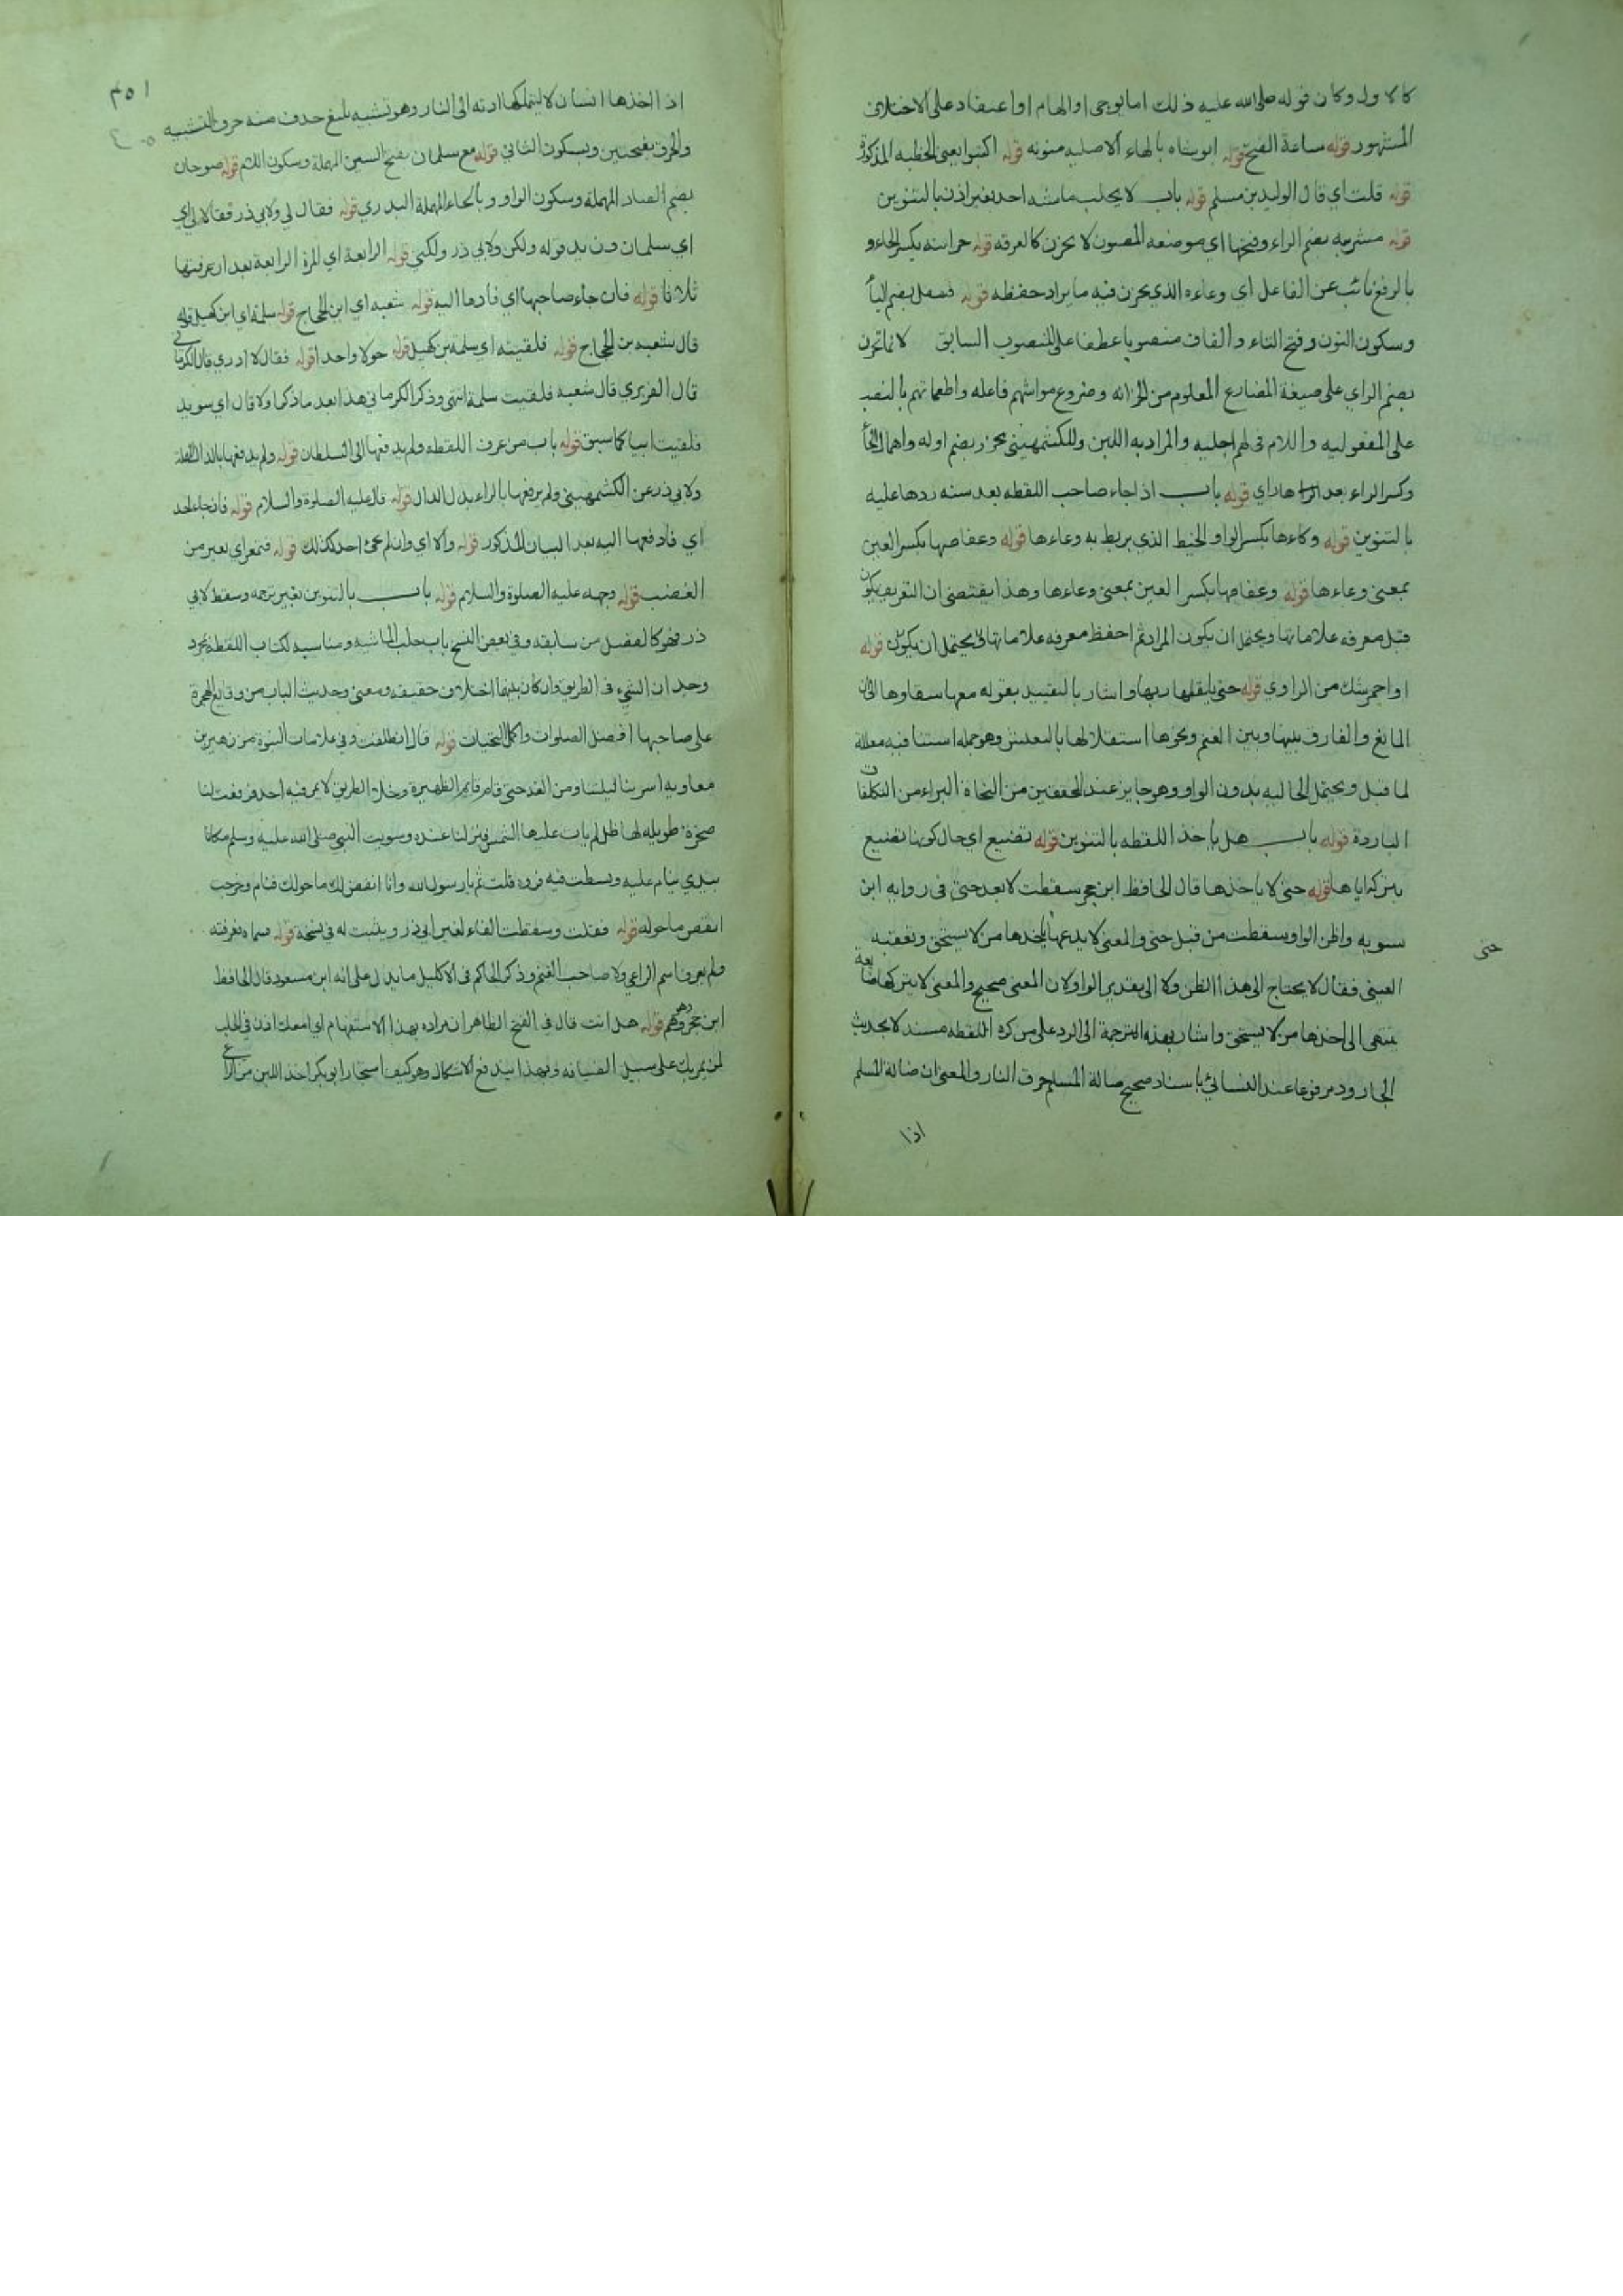 كالاول وكان قوله صلى الله عليه ذلك اما بوحي او الهام او اعتقاد على الاختلاف
المشهور قوله ساعة الفتح قوله ابو شاه بالهاء الاصلية منونه قوله اكتبوا يعني الخطبه المذكورة
قوله قلت اي قال الوليد بن مسلم قوله باب لا يحلب ماشيه احد بغير اذن بالتنوين
قوله مشربه بضم الراء وفتحها اي موضعه المصون لا يخزن كالغرفه قوله خزانته بكسر الخاء و
بالرفع نائب عن الفاعل اي وعاءه الذي يخزن فيه ما يراد حفظه قوله فينتقل بضم اليا
وسكون النون وفتح التاء والقاف منصوبا عطفا على المنصوب السابق لانما تخزن
بضم الزاي على صيغة المضارع المعلوم من الخزانه وضروع مواشيهم فاعله واطعماتهم بالنصب
على المفعوليه واللام في لهم اجليه والمراد به اللبن وللكشمهيني تحرز بضم اوله واهمال الحا
وكسر الراء بعدها زاي قوله باب اذا جاء صاحب اللقطه بعد سنه ردها عليه
بالتنوين قوله وكاءها بكسر الواو الخيط الذي يربط به وعاءها قوله وعفاصها بكسر العين
بمعنى وعاءها قوله وعفاصها بكسر العين بمعنى وعاءها وهذا يقتضي ان التعريف يكون
قبل معرفه علاماتها ويحتمل ان يكون المراد ثم احفظ معرفه علاماتها ويحتمل ان يكون قوله
او احمر شك من الراوي قوله حتى يلقاها ربها واشار بالتقييد بقوله معها سقاوها الى ان
المانع والفارق بينها وبين الغنم ونحوها استقلالها بالتعيش وهو جمله استئنافيه معللة
لما قبل ويحتمل الحاليه بدون الواو وهو جايز عند المحققين من النحاة البراء من التكلفات
الباردة قوله باب هل ياخذ اللقطه بالتنوين قوله تضيع اي حال كونها تضيع
بتركه اياها قوله حتى لا ياخذها قال الحافظ ابن حجر سقطت لا بعد حتى في روايه ابن
سبويه واظن الواو سقطت من قبل حتى والمعنى لا يدعها ياخذها من لا يستحق وتعقبه
حتى
العيني فقال لا يحتاج الى هذا الظن ولا الى تقدير الواو لان المعنى صحيح والمعنى لا يتركها ضايعة
ينتهي الى اخذها من لا يستحق واشار بهذه الترجمة الى الرد على من كره اللقطه مستند لا بحديث
الجارود مرفوعا عند النسائي باسناد صحيح ضالة المسلم حرق النار والمعنى ان ضالة المسلم
اذا
٢٥١
اذا اخذها انسان لا ليتملكها ادته الى النار وهو تشبيه بليغ حذف منه حرف التشبيه
والحرق بفتحتين ويسكون الثاني قوله مع سلمان بفتح السين المهملة وسكون اللام قوله صوحان
بضم الصاد المهملة وسكون الواو وبالحاء المهملة البدري قوله فقال لي ولابي ذر فقالا لي اي
اي سلمان وزيد قوله ولكن ولابي ذر ولكني قوله الرابعة اي المرة الرابعة بعد ان عرفتها
ثلاثا قوله فان جاء صاحبها اي فادها اليه قوله شعبه اي ابن الحجاج قوله سلمة اي ابن كهيل قوله
قال شعبه بن الحجاج قوله فلقيته اي سلمة بن كهيل قوله حولا واحدا قوله فقال لا ادري قال الكرماني
قال الفربري قال شعبه فلقيت سلمة انتهى وذكر الكرماني هذا بعد ما ذكر اولا قال اي سويد
فلقيت ابيا كما سبق قوله باب من عرف اللقطه ولم يدفعها الى السلطان قوله ولم يدفعها بالدال المهملة
ولابي ذر عن الكشمهيني ولم يرفعها بالراء بدل الدال قوله قال عليه الصلوة والسلام قوله فان جاء احد
اي فادفعها اليه بعد البيان المذكور قوله والا اي وان لم يجئ احد كذلك قوله فتمعر اي تغير من
الغضب قوله وجهه عليه الصلوة والسلام قوله باب بالتنوين بغير ترجمه وسقط لابي
ذر فهو كالفصل من سابقه وفي بعض النسخ باب حلب الماشيه ومناسبه لكتاب اللقطه مجرد
وجدان الشيء في الطريق وان كان بينهما اختلاف حقيقه ومعنى وحديث الباب من وقايع الهجرة
على صاحبها افضل الصلوات واكمل التحيات قوله قال انطلقت وفي علامات النبوة من زهير بن
معاويه اسرينا ليلتنا ومن الغد حتى قام قايم الظهيرة وخلا الطريق لا يمر فيه احد فرفعت لنا
صخرة طويله لها ظل لم يات عليها الشمس فنزلنا عنده وسويت النبي صلى الله عليه وسلم مكانا
بيدي ينام عليه وبسطت فيه فروه قلت نم يا رسول الله وانا انفض لك ما حولك فنام وخرجت
انفض ما حوله قوله فقلت وسقطت الفاء لغير ابي ذر ويثبت له في نسخة قوله سماه فعرفته
ولم يعرف اسم الراعي ولا صاحب الغنم وذكر الحاكم في الاكليل ما يدل على انه ابن مسعود قال الحافظ
ابن حجر وهو وهم قوله هل انت قال في الفتح الظاهر ان مراده بهذا الاستفهام اي امعك اذن في الحلب
لمن يمر بك على سبيل الضيافه وبهذا يندفع الاشكال وهو كيف استجار ابو بكر اخذ اللبن من الراعي